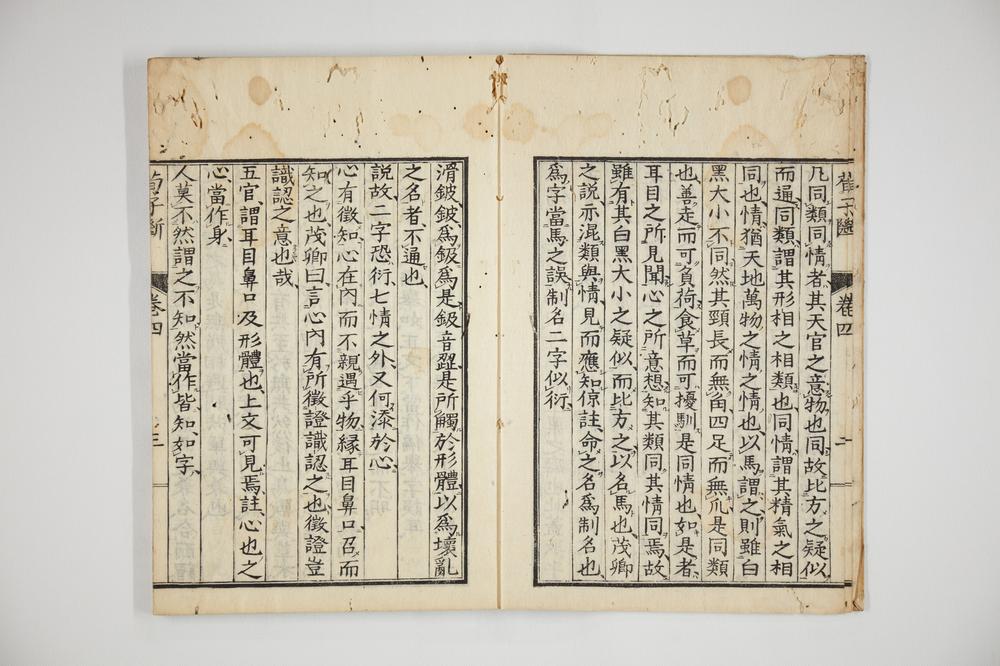 凡同類同情者其天官之意物也同故比方之疑似
而通同類謂其形相之相類也同情謂其精氣之相
同也情猶天地萬物之情之情也以馬謂之則雖白
黑大小不同然其頸長而無角四足而無爪是同類
也善走而可負荷食草而可擾馴是同情也如是者
耳目之所見聞心之所意想知其類同其情同焉故
雖有其白黑大小之疑似而比方之以名馬也茂卿
之説亦混類與情見而應知倞註命之名爲制名也
爲字當馬之誤制名二字似衍
卷四
二
滑鈹鈹爲鈒爲是鈒音躍是所觸於形體以爲壞亂
之名者不通也
説故二字恐衍七情之外又何添於心
心有徵知心在內而不親遇乎物縁耳目鼻口召而
知之也茂卿曰言心內有所徵證識認之也徵證豈
識認之意也哉
五官謂耳目鼻口及形體也上文可見焉註心也之
心當作身
人莫不然謂之不知然當作皆知如字
荀子斷
卷四
三